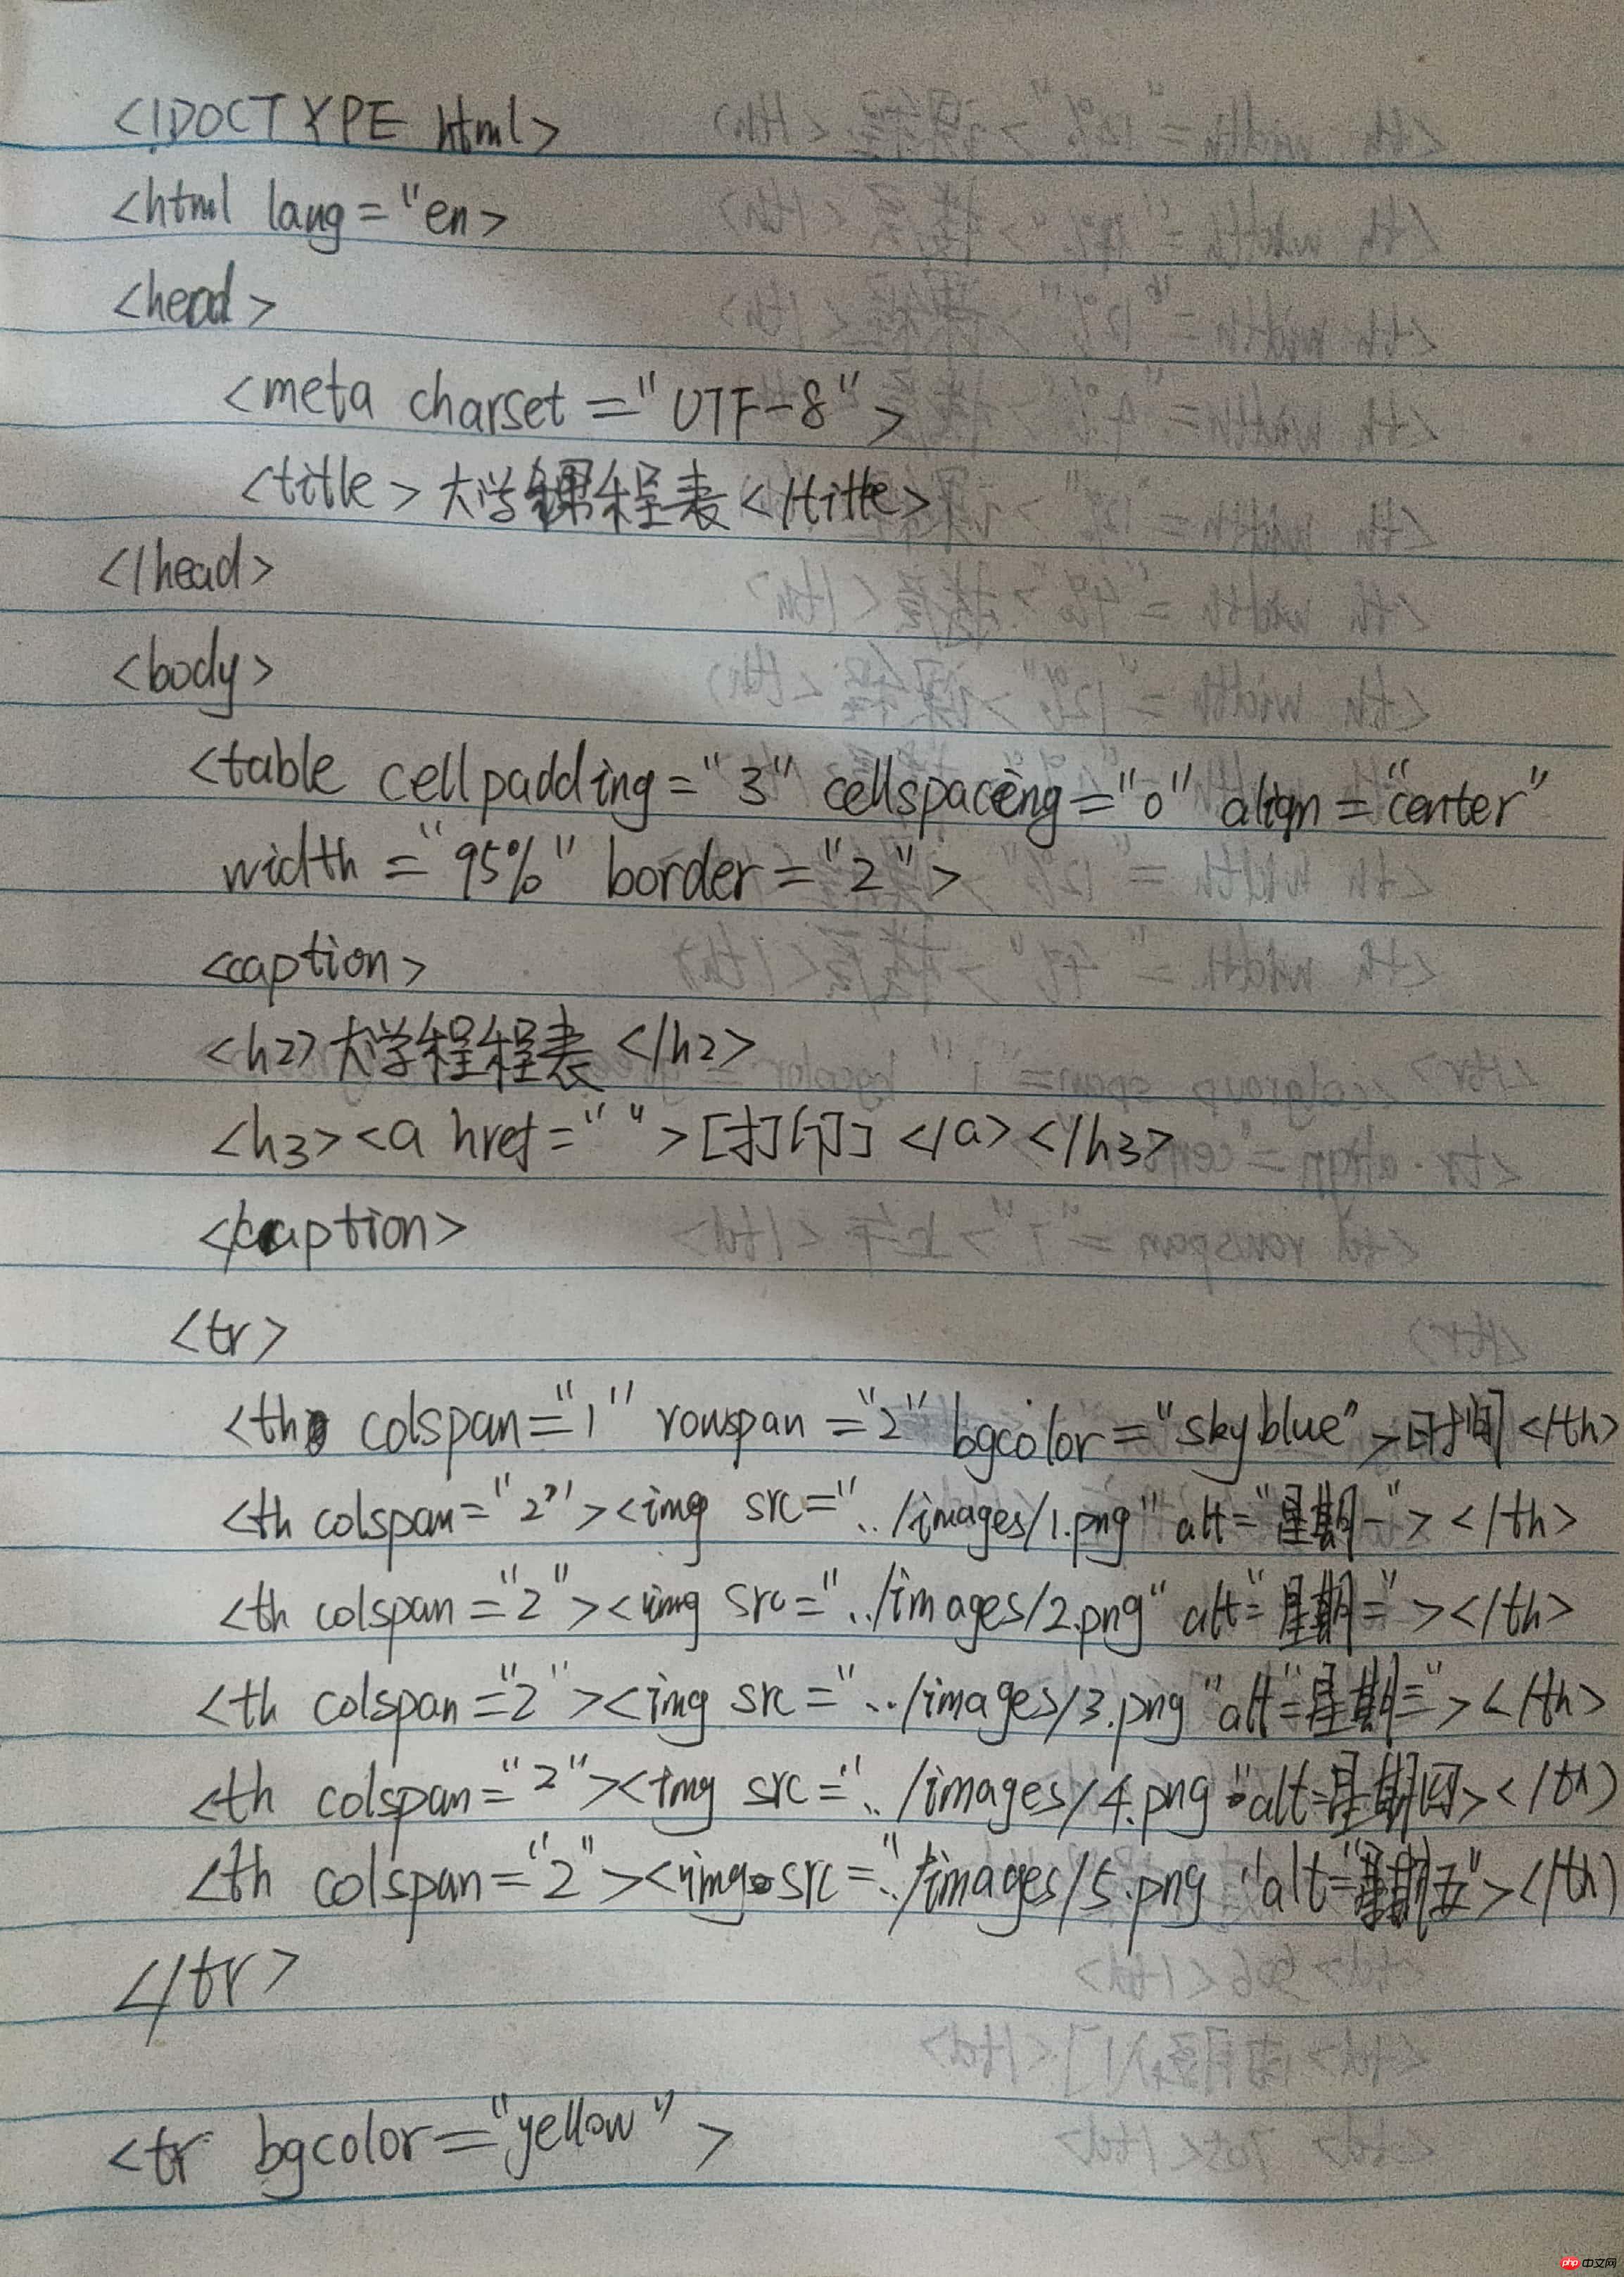 <!DOCTYPE html>
<html lang="en>
<head>
<meta charset="UTF-8">
<title>大学课程表</title>
</head>
<body>
<table cellpadding="3" cellspaceing="0" align="center"
width="95%" border="2">
<caption>
<h2>大学程程表</h2>
<h3><a href="">[打印]</a></h3>
</caption>
<tr>
<th colspan="1" rowspan="2" bgcolor="skyblue">时间</th>
<th colspan="2"><img src="../images/1.png" alt="星期一"></th>
<th colspan="2"><img src="../images/2.png" alt="星期二"></th>
<th colspan="2"><img src="../images/3.png" alt="星期三"></th>
<th colspan="2"><img src="../images/4.png" alt=星期四></th>
<th colspan="2"><img src="../images/5.png" alt="星期五"></th>
</tr>
<tr bgcolor="yellow">
php中文网